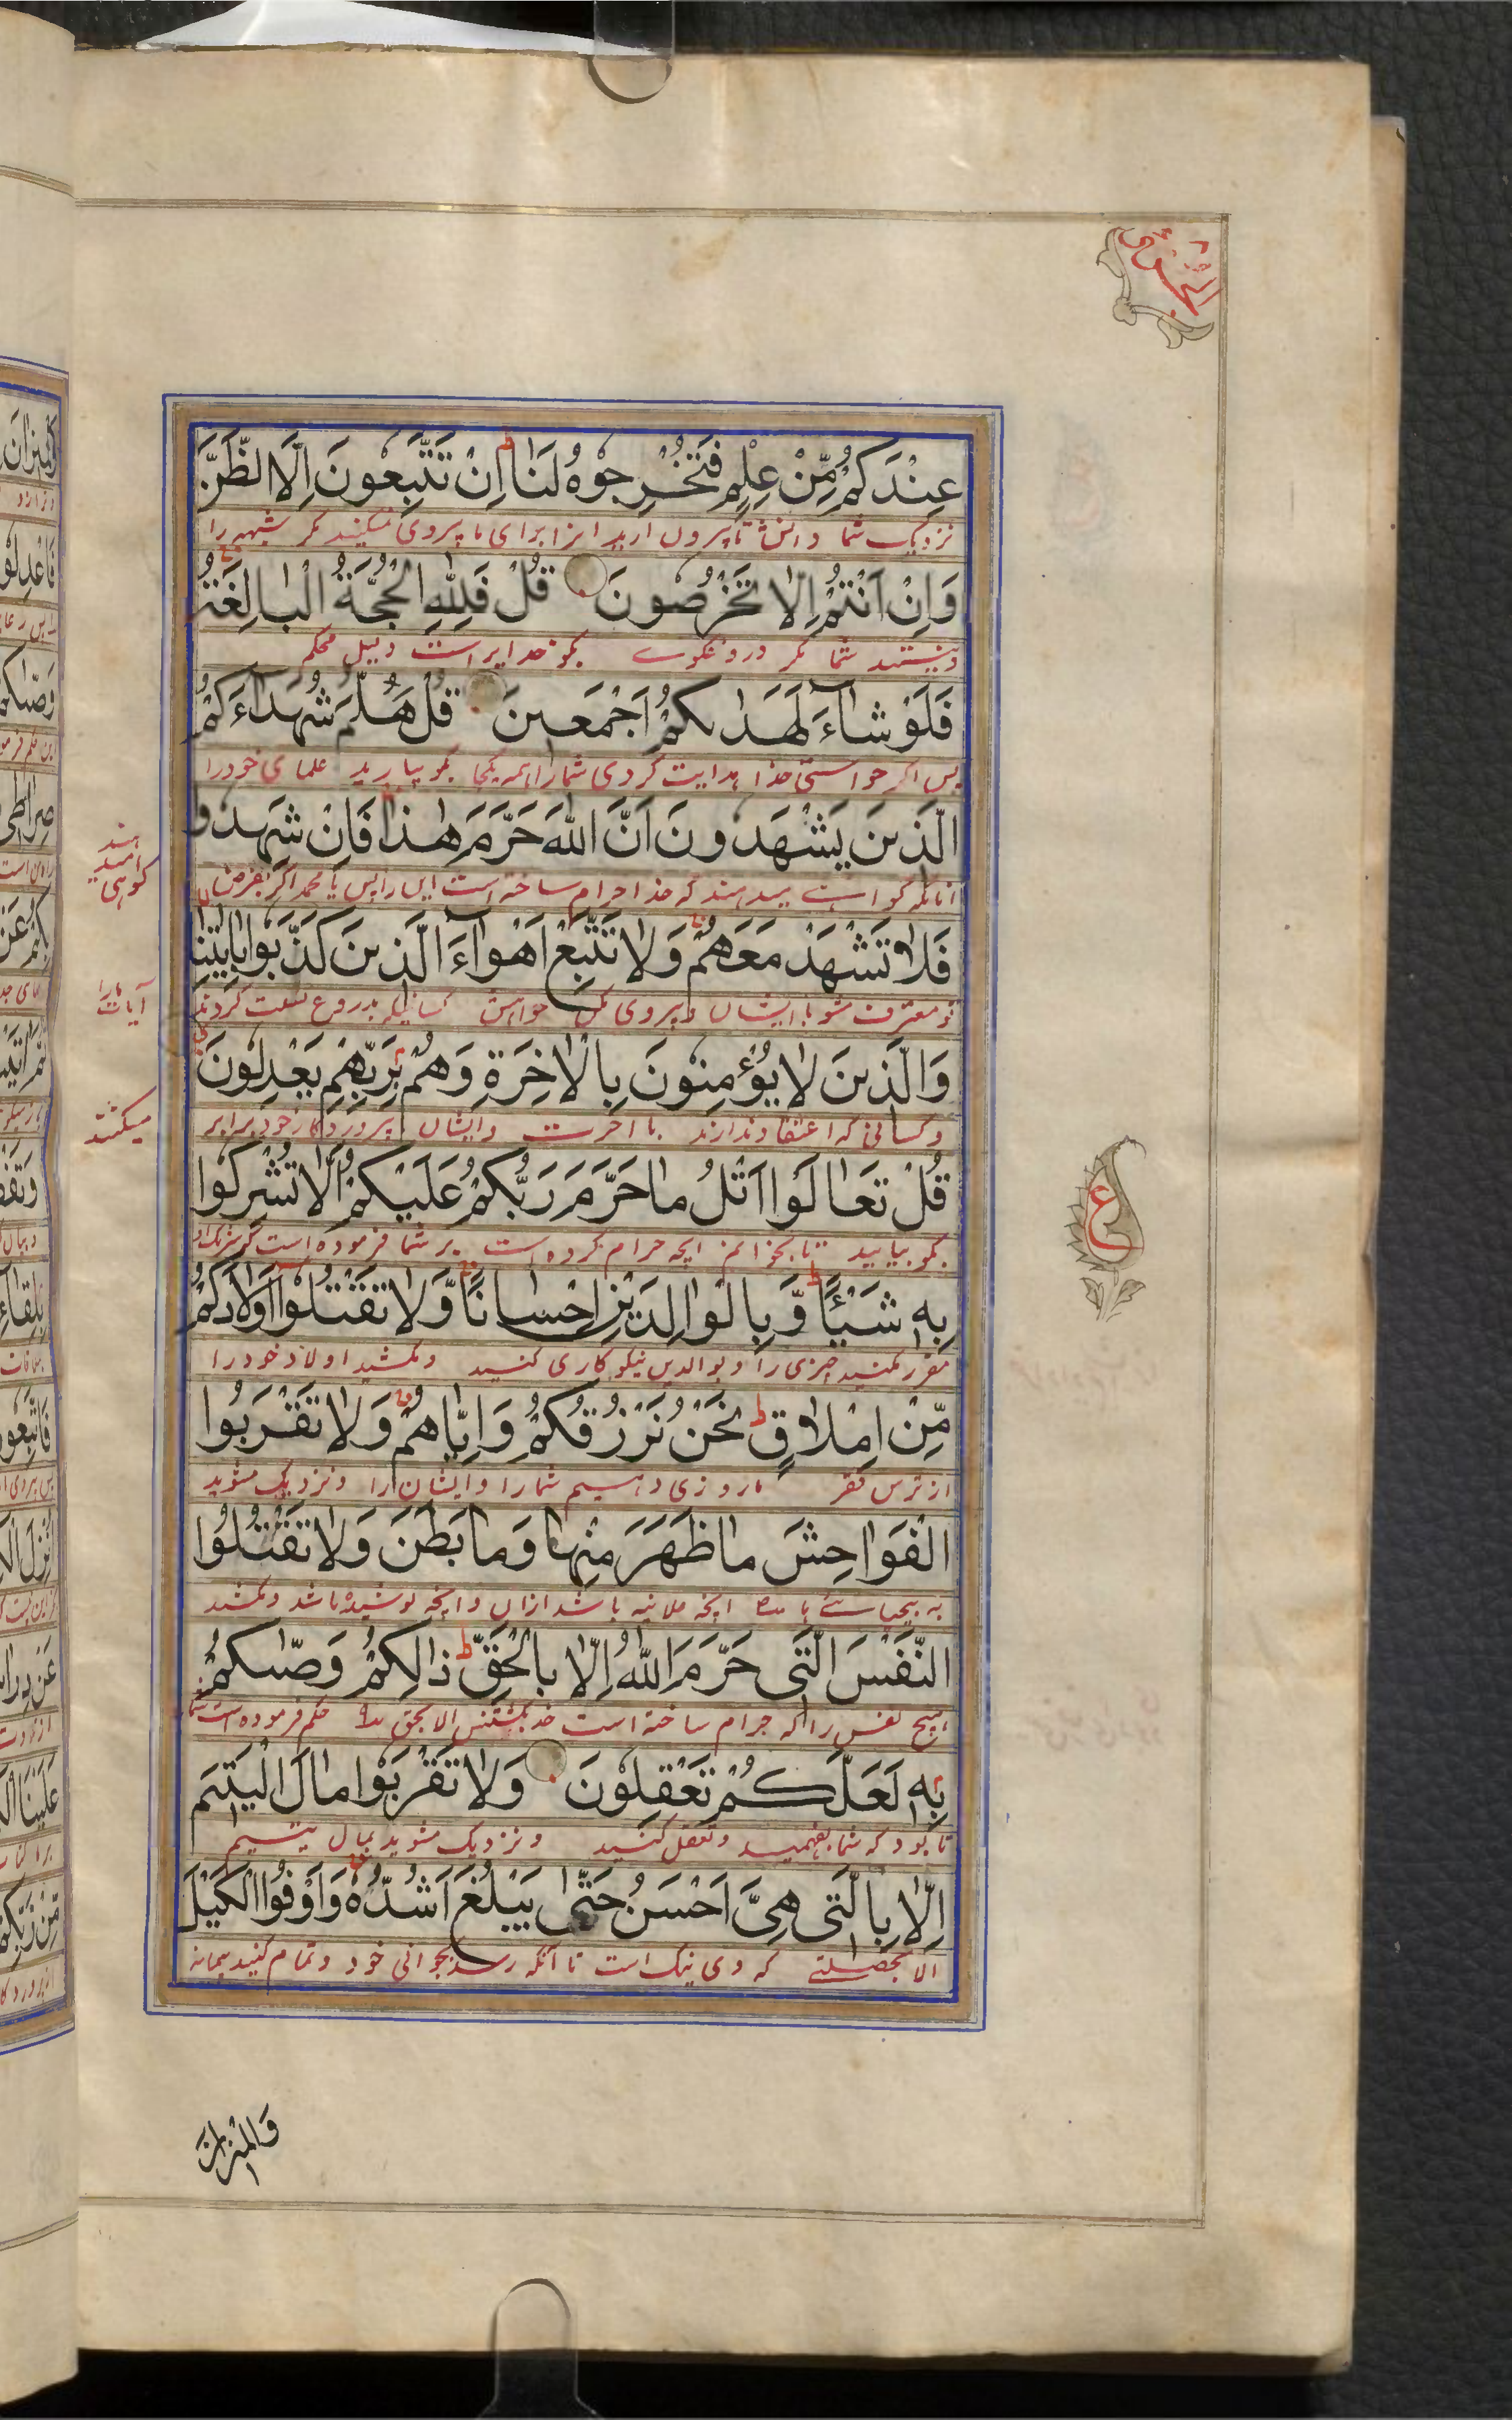 عِنْدَكُمْ مِّنْ عِلْمٍ فَتُخْرِجُوْهُ لَنَا اِنْ تَتَّبِعُوْنَ اِلَّا الظَّنَّ
نزدیک شما دانش تا بیرون ارید انرا برای ما پیروی نمیکنید مکر شبهه را
وَاِنْ اَنْتُمْ اِلَّا تَخْرُصُوْنَ قُلْ فَلِلّٰهِ الْحُجَّةُ الْبَالِغَةُ
ونیستند شما مکر دروغکوی بکو خدایراست دلیل محکم
فَلَوْ شَآءَ لَهَدٰىكُمْ اَجْمَعِيْنَ قُلْ هَلُمَّ شُهَدَآءَكُمُ
پس اکر خواستی خدا هدایت کردی شمارا همه یکجا بکو بیارید علمای خودرا
الَّذِيْنَ يَشْهَدُوْنَ اَنَّ اللّٰهَ حَرَّمَ هٰذَا فَاِنْ شَهِدُوْا
انانکه کواهی میدهند که خدا حرام ساخته است این را پس یا محمد اکر بفرض
هند
کواهی
فَلَا تَشْهَدْ مَعَهُمْ وَلَا تَتَّبِعْ اَهْوَآءَ الَّذِيْنَ كَذَّبُوْا بِاٰيٰتِنَا
تو معترف مشو با ایشان و پیروی مکن خواهش کسانیکه بدروغ نسبت کردند
آیات مارا
وَالَّذِيْنَ لَا يُؤْمِنُوْنَ بِالْاٰخِرَةِ وَهُمْ بِرَبِّهِمْ يَعْدِلُوْنَ
وکسانی که اعتقاد ندارند با آخرت وایشان پروردکار خود برابر
میکنند
قُلْ تَعَالَوْا اَتْلُ مَا حَرَّمَ رَبُّكُمْ عَلَيْكُمْ اَلَّا تُشْرِكُوْا
بکو بیایید تا بخوانم انچه حرام کرده است بر شما فرموده است که شریک
بِهٖ شَيْـًٔا وَّبِالْوَالِدَيْنِ اِحْسَانًا وَّلَا تَقْتُلُوْا اَوْلَادَكُمْ
مقرر مکنید چیزی را و بوالدین نیکوکاری کنید ومکشید اولاد خودرا
مِّنْ اِمْلَاقٍ نَحْنُ نَرْزُقُكُمْ وَاِيَّاهُمْ وَلَا تَقْرَبُوا
از ترس فقر ما روزی دهیم شمارا وایشان را ونزدیک مشوید
الْفَوَاحِشَ مَا ظَهَرَ مِنْهَا وَمَا بَطَنَ وَلَا تَقْتُلُوا
به بیحیائی انچه علانیه باشد ازان وانچه پوشیده باشد ومکشید
النَّفْسَ الَّتِىْ حَرَّمَ اللّٰهُ اِلَّا بِالْحَقِّ ذٰالِكُمْ وَصّٰىكُمْ
هیچ نفس را که حرام ساخته است خدا کشتنش الا بحق حکم فرموده است شما
بِهٖ لَعَلَّكُمْ تَعْقِلُوْنَ وَلَا تَقْرَبُوْا مَالَ الْيَتِيْمِ
تا بود که شما بفهمید وتعقل کنید ونزدیک مشوید بمال یتیم
اِلَّا بِالَّتِىْ هِىَ اَحْسَنُ حَتّٰى يَبْلُغَ اَشُدَّهٗ وَاَوْفُوا الْكَيْلَ
الا بخصلتی که وی نیک است تا آنکه رسد بجوانی خود وتمام کنید پیمانه
ع
وَالْمِيْزَانَ